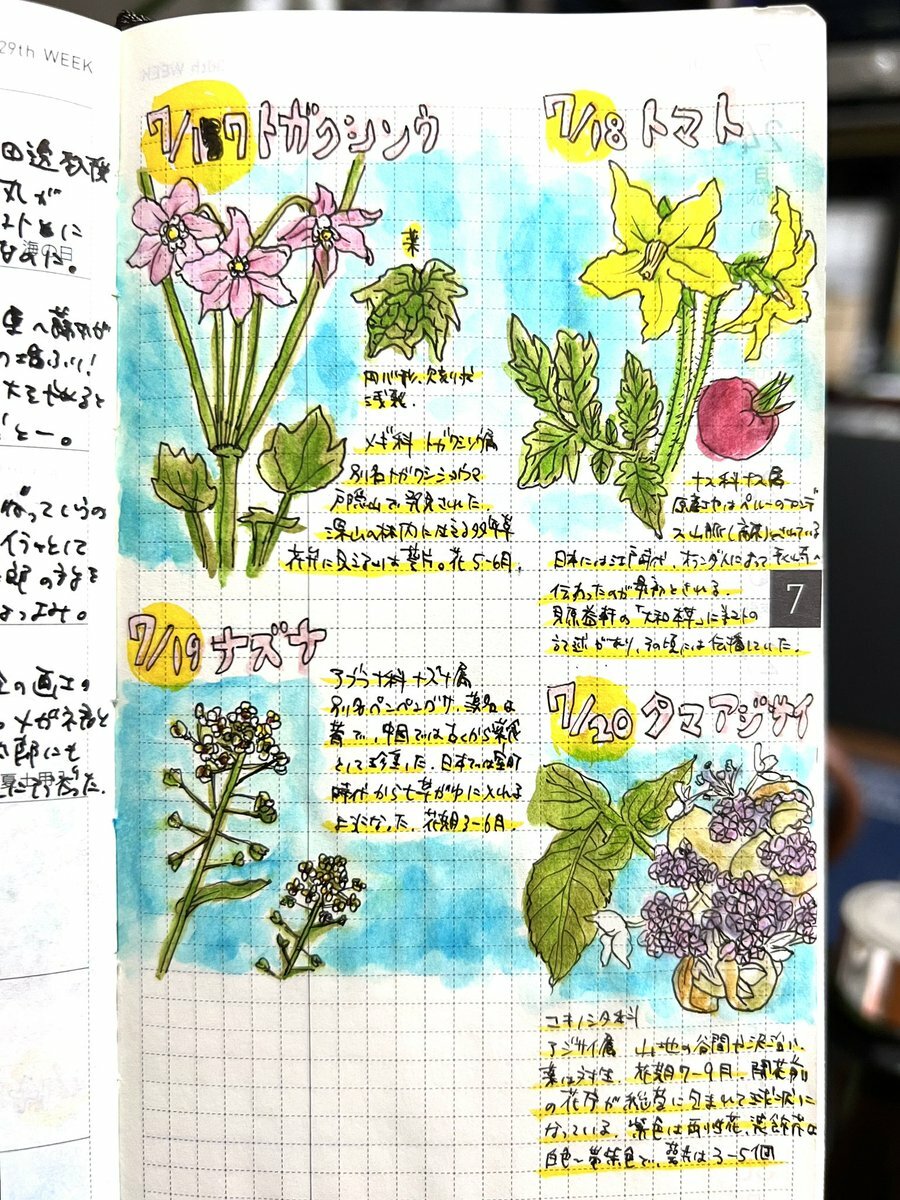 29th WEEK
7/17 トガクシソウ
葉
円心形、欠刻状
浅裂.
メギ科 トガクシソウ属
別名 トガクシショウマ
戸隠山で発見された.
深山の林内に生える多年草
花弁に見えるのは萼片。花5~6月.
7/18 トマト
ナス科ナス属
原産地はペルーのアンデ
ス山脈(高原)とされている
日本には江戸時代、オランダ人によって長崎へ
伝わったのが最初とされる.
貝原益軒の「大和本草」にトマトの
記述があり、その頃には伝播していた.
7
7/19 ナズナ
アブラナ科 ナズナ属
別名ペンペングサ. 漢名は
薺で、中国では古くから薬食
として珍重した. 日本では室町
時代から七草がゆに入れる
ようになった. 花期3~6月.
7/20 タマアジサイ
ユキノシタ科
アジサイ属 山地の谷間や沢沿い.
葉は対生. 花期7~9月. 開花前
の花序が総苞に包まれて球状に
なっている. 紫色は両性花、装飾花は
白色~帯紫色で、萼片は3~5個
田邊教授
丸が
ストとに
海の日
なった。
大をやめると
ってしうの
として
郎の
画工の
メガネ
郎にも
夏土用
だった.